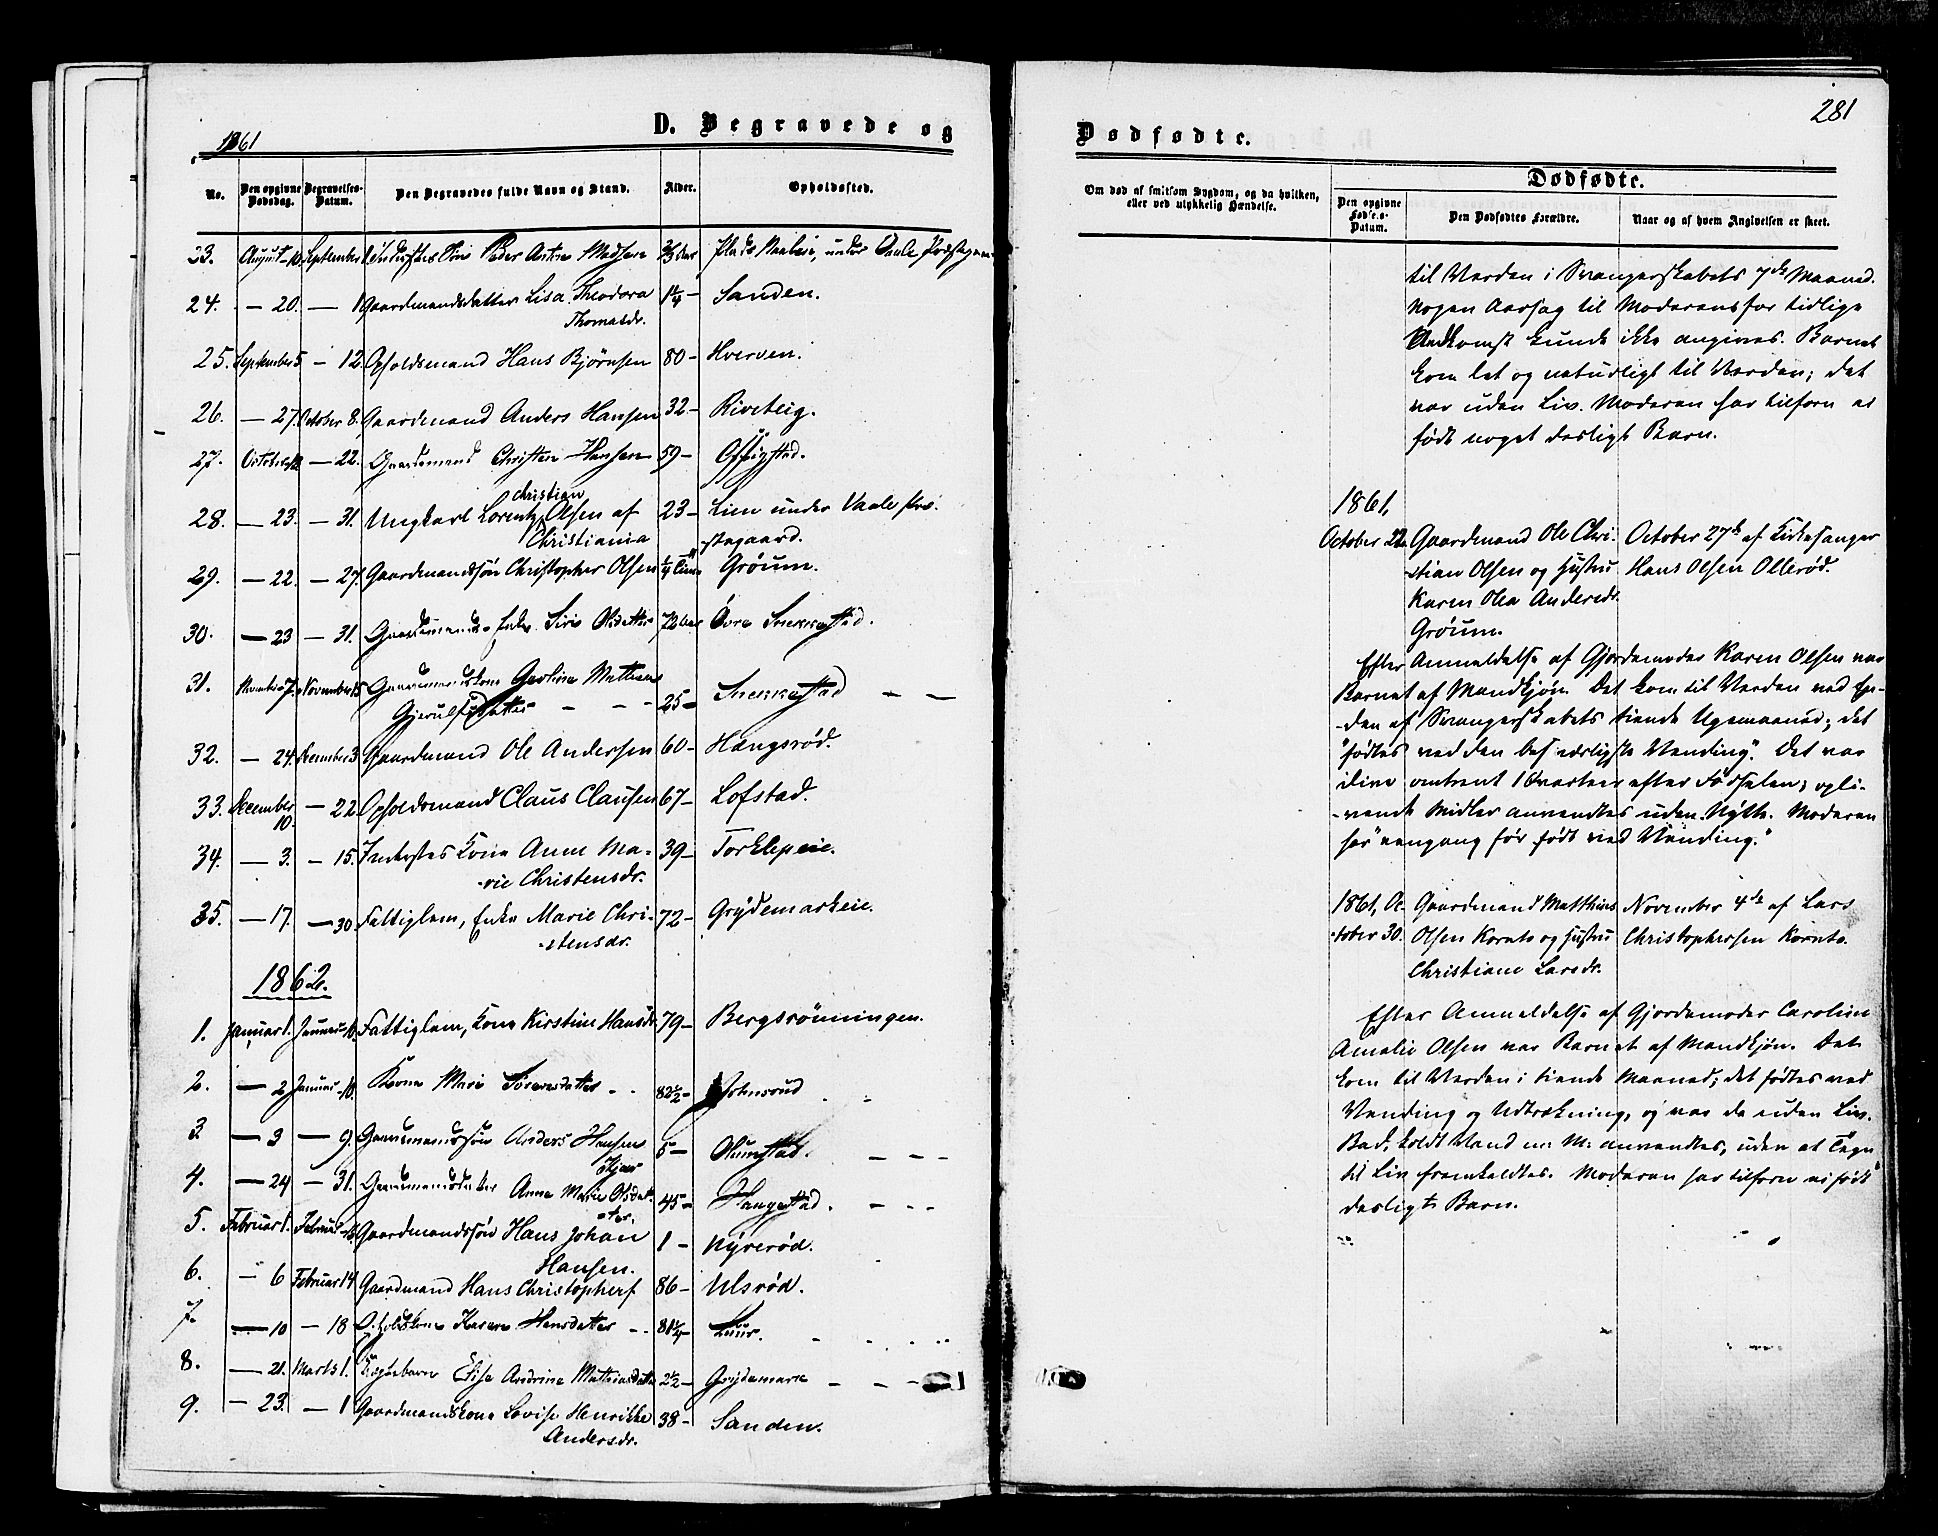 281
1861
D. Begravede og
Dødfødte.
No. Den opgivne Dødsdag. Begravelses-Datum. Den Begravedes fulde Navn og Stand. Alder. Opholdssted.
23. August 10. September 1 Søn Peder Anton Madsen under Vaale Præstegaard
24. — 20. — 1 Gaardmandsdatter Lisa Theodora 1 1/4 — Sanden.
Thomasdr.
25. September 5. — 12. Opholdsmand Hans Bjørnsen 80 — Hverven.
26. — 27. October 8. Gaardmand Anders Hansen 32 — Riveteig.
27. October — 22. Gaardmand Christen Hansen 59 —
Christian
28. — 23. — 31. Ungkarl Lorentz Olsen af 23 — Lien under Vaale Præ-
Christiania stegaard.
29. — 22. — 27. Gaardmandssøn Christopher Olsen 1/4 Time Grøum.
30. — 23 — 31. Gaardmands Enke Siri Olsdatter 72 Aar Øvre Snekkestad.
31. November 7. November 15 Gaardmandskone Mathea
Gjerulfsdatter — — — 25 — Snekkestad — —
32. — 24. December 3. Gaardmand Ole Andersen 60 — Hængsrød.
33. December — 22. Opholdsmand Claus Clausen 67 — Lofstad.
10.
34. — 3. — 15. Inderstes Kone Anne Ma- 39 — Torklepeie.
-rie Christensdr.
35. — 17. — 30 Fattiglem, Enke Marie Chri- 72 — Grydemarkeie.
-stensdr.
1862.
1. Januar 1. Januar 10. Fattiglem, Kone Kirstine Hansdr. 79 — Bergsrönningen.
2. — 2 Januar 10. Kone Mari 82 1/2 — Johnsrud
3 — 3 — 9 Gaardmandssøn Anders Hansen 5 —
4. — 24 — 31. Anne Marie Olsdat- 45 — Haugestad.
-ter.
5. Februar 1. Februar Gaardmandssøn Hans Johan 1 — Nyrerød.
Hansen.
6. — 6 Februar 14. Gaardmand Hans Christophers. 86 — Ulsrød.
7. — 10 — 18 Karen Hansdatter 81 1/4 —
8. — 21. Marts 1. Elise Andrine Mathiasdatter 2 1/2 — Grydemark — — —
9. — 23. — 1 Gaardmandskone Lovise Henrikke 38 — Sanden.
Andersdr.
Om død af smitsom Sygdom, og da hvilken, eller ved ulykkelig Hændelse.
Dødfødte.
Den opgivne Fødsels-Datum. Den Dødfødtes Forældre. Naar og af hvem Angivelsen er skeet.
til Verden i Svangerskabets 7de Maaned.
Nogen Aarsag til Moderens for tidlige
Nedkomst kunde ikke angives. Barnet
kom let og naturligt til Verden; det
var uden Liv. Moderen har tilforn ei
født noget desligt Barn.
1861,
October 22. Gaardmand Ole Chri- October 27de af Kirkesanger
-stian Olsen og Hustru Hans Olsen Ollerød.
Karen Olea Andersdr.
Grøum.
Efter Anmeldelse af Gjordemoder Karen Olsen var
Barnet af Mandkjøn. Det kom til Verden ved En-
-den af Svangerskabets tiende Ugemaaned; det
"fødtes ved den besværligste Vending". Det var
ilive omtrent 1 Qvarteer efter Fødselen; opli-
-vende Midler anvendtes uden Nytte. Moderen
har "eengang før født ved Vending."
1861, Oc- Gaardmand Matthias November 4de af Lars
-tober 30. Olsen Kornto og Hustru Christophersen Kornto.
Christiane Larsdr.
Efter Anmeldelse af Gjordemoder Caroline
Amalie Olsen var Barnet af Mandkjøn. Det
kom til Verden i tiende Maaned; det fødtes ved
Vending og Udtrækning, og var da uden Liv.
Bad, koldt Vand m: M: anvendtes, uden at Tegn
til Liv fremkaldtes. Moderen har tilforn ei født
desligt Barn.